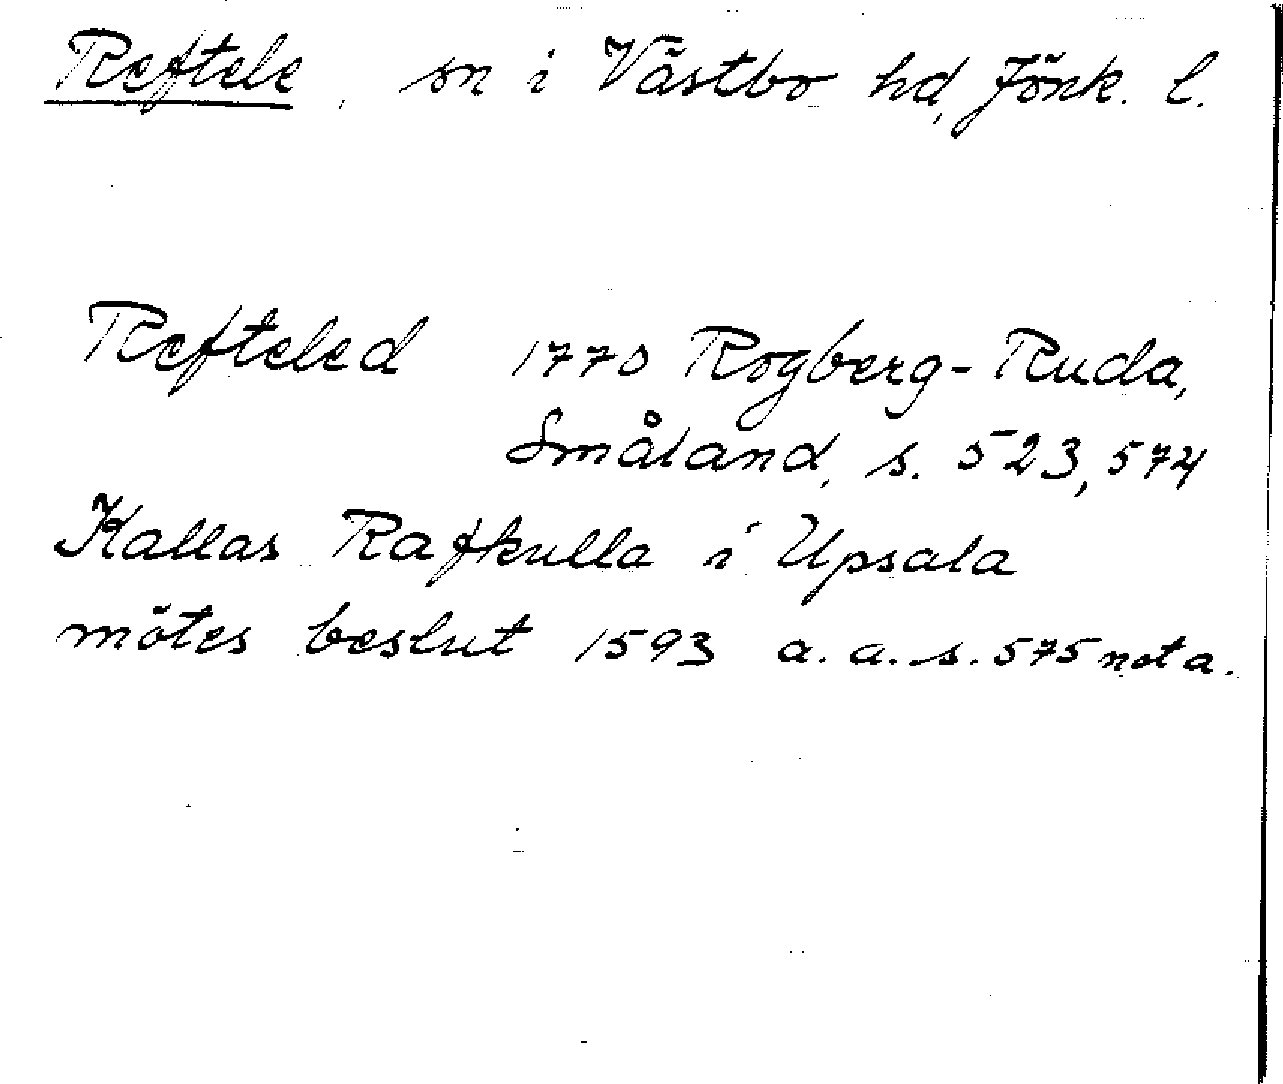 Reftele, sn i Västbo hd, Jönk. l.
Refteled 1770 Rogberg-Ruda,
Småland, s. 523, 574
Kallas Rafkulla i Upsala
mötes beslut 1593 a. a. s. 575 nota.